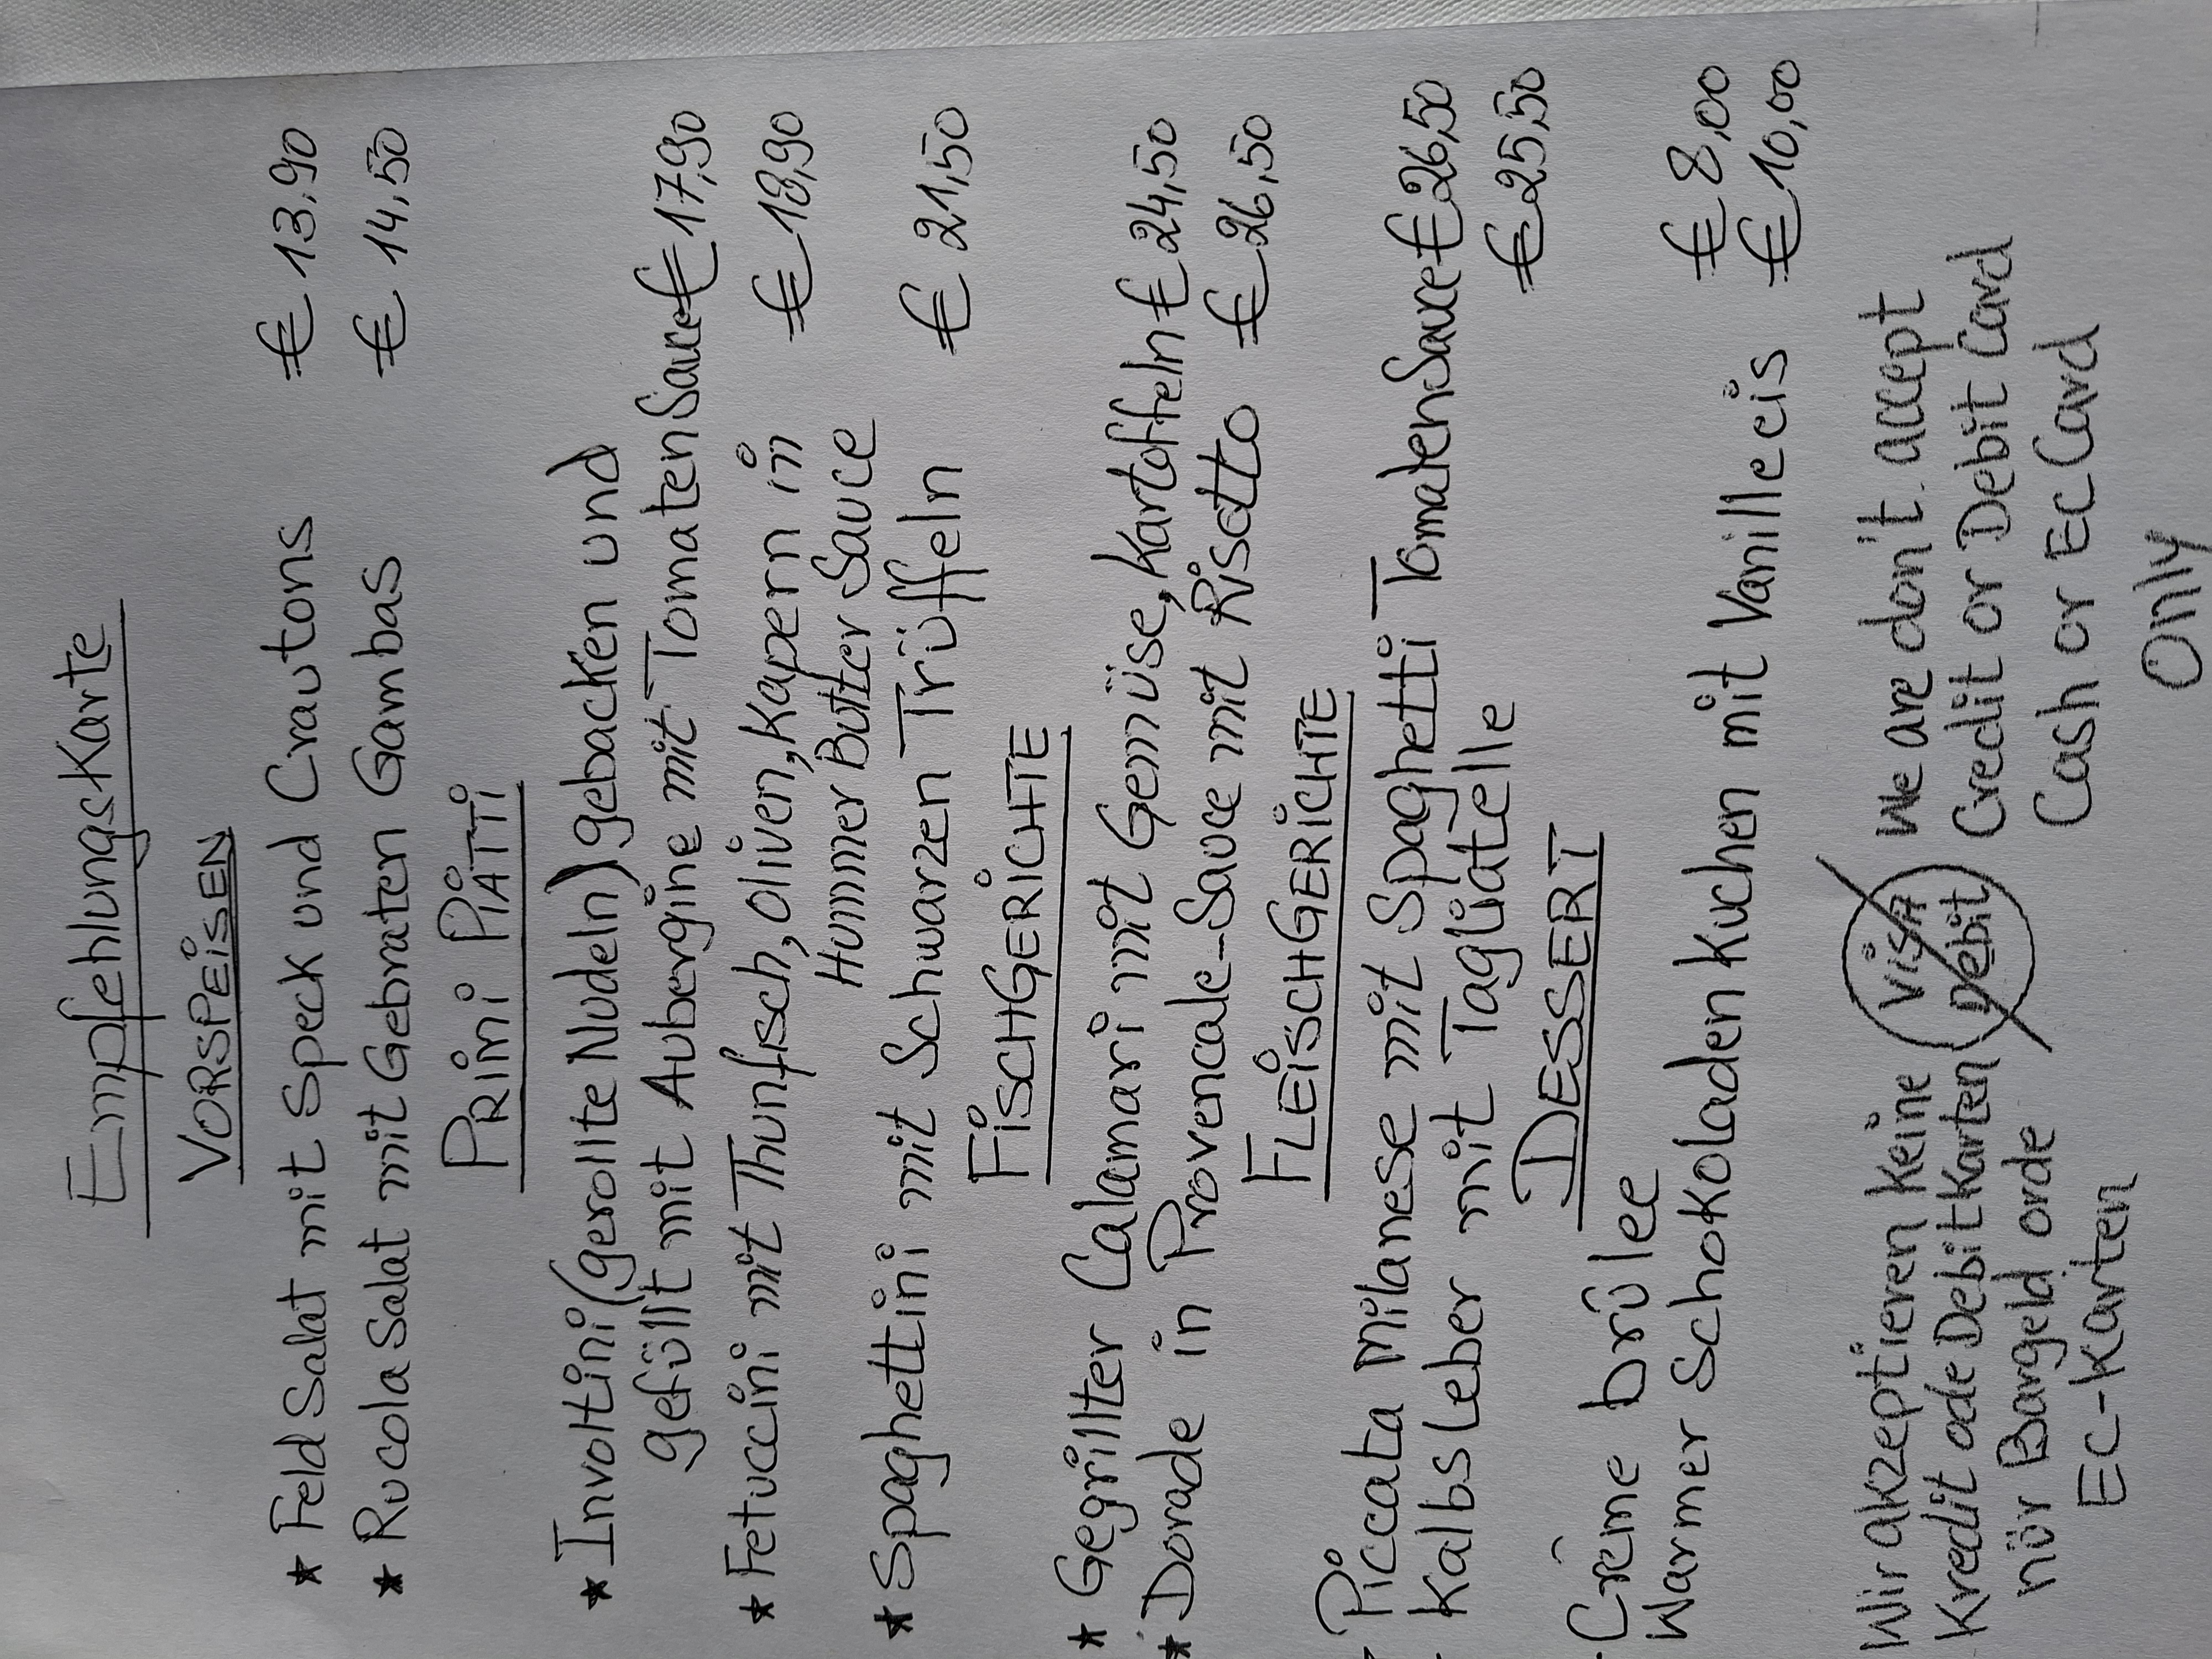 Empfehlungskarte
VORSPEiSEN
★ Feld Salat mit Speck und Crautons € 13,90
★ Rucola Salat mit Gebraten Gambas € 14,50
PRiMi PiATTi
★ Involtini (gerollte Nudeln) gebacken und
gefüllt mit Aubergine mit Tomaten Sauce € 17,90
★ Fetuccini mit Thunfisch, oliven, Kapern in € 18,90
Hummer Butter Sauce
★ Spaghettini mit Schwarzen Trüffeln € 21,50
FiSCHGERiCHTE
★ Gegrillter Calamari mit Gemüse, Kartoffeln € 24,50
★ Dorade in Provencale-Sauce mit Risotto € 26,50
FLEiSCHGERiCHTE
Piccata milanese mit Spaghetti TomatenSauce € 26,50
Kalbsleber mit Tagliatelle € 25,50
DESSERT
Créme brülee € 8,00
Warmer Schokoladen Kuchen mit Vanilleeis € 10,00
Wir akzeptieren Keine
Kredit ode Debit Karten
nür Bargeld orde
EC-Karten
ViSA
Debit
We are don't accept
Credit or Debit Card
Cash or EC Card
Only